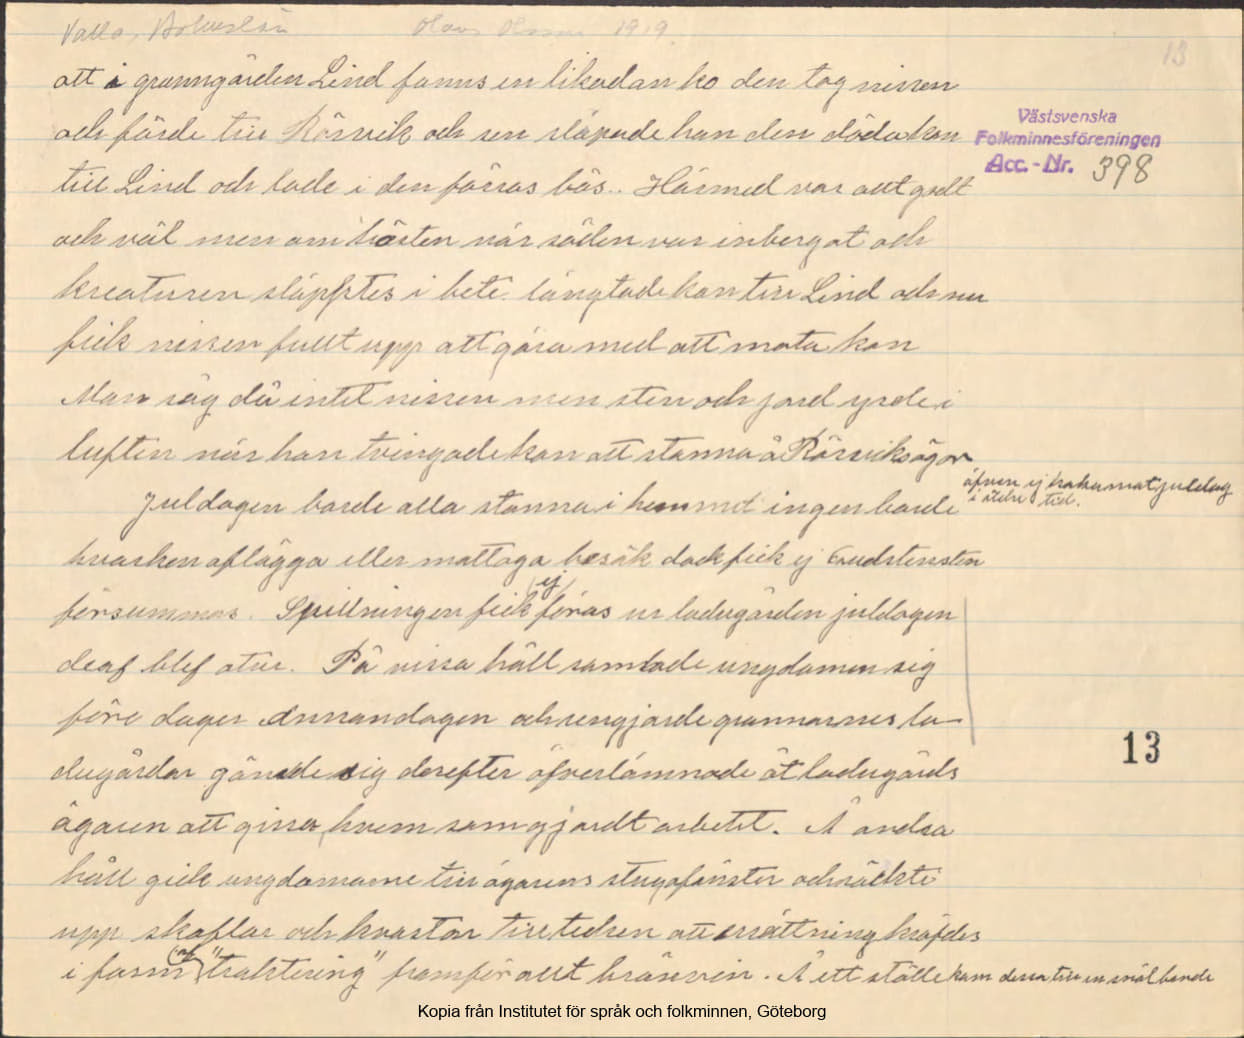 Valla, Bohuslän 1919.
13
att i granngården Lind fanns en likadan ko den tog nissen
och förde till Rörvik och sen släpade han den döda kon
till Lind och lade i den förras bås.. Härmed var allt godt
och väl men om hösten när säden var inbergat och
kreaturen släpptes i bete längtade kon till Lind och nu
fick nissen fullt upp att göra med att mota kon
Man såg då intet nissen men sten och jord yrde i
luften när han tvingade kon att stanna å Rörviksägor
Juldagen borde alla stanna i hemmet ingen borde
äfven ej koka mat juldag
i äldre tid.
hvarken aflägga eller mottaga besök dock fick ej Gudstensten
försummas. Spillningen fick ej föras ur ladugården juldagen
deraf blef otur. På vissa håll samlade ungdomen sig
före dager Annandagen och rengjorde grannarnes la-
dugårdar gömde sig derefter öfverlämnade åt ladugårds
ägaren att gissa hvem som gjordt arbetet. Å andra
håll gick ungdomarne till ägarens stugofönster och räckte
upp skoflar och kvastar till tecken att ersättning kräfdes
i form af "traktering" framför allt brännvin. Å ett ställe kom dessa till en snål bonde
Västsvenska
Folkminnesföreningen
Acc.-Nr. 398
13
Kopia från Institutet för språk och folkminnen, Göteborg